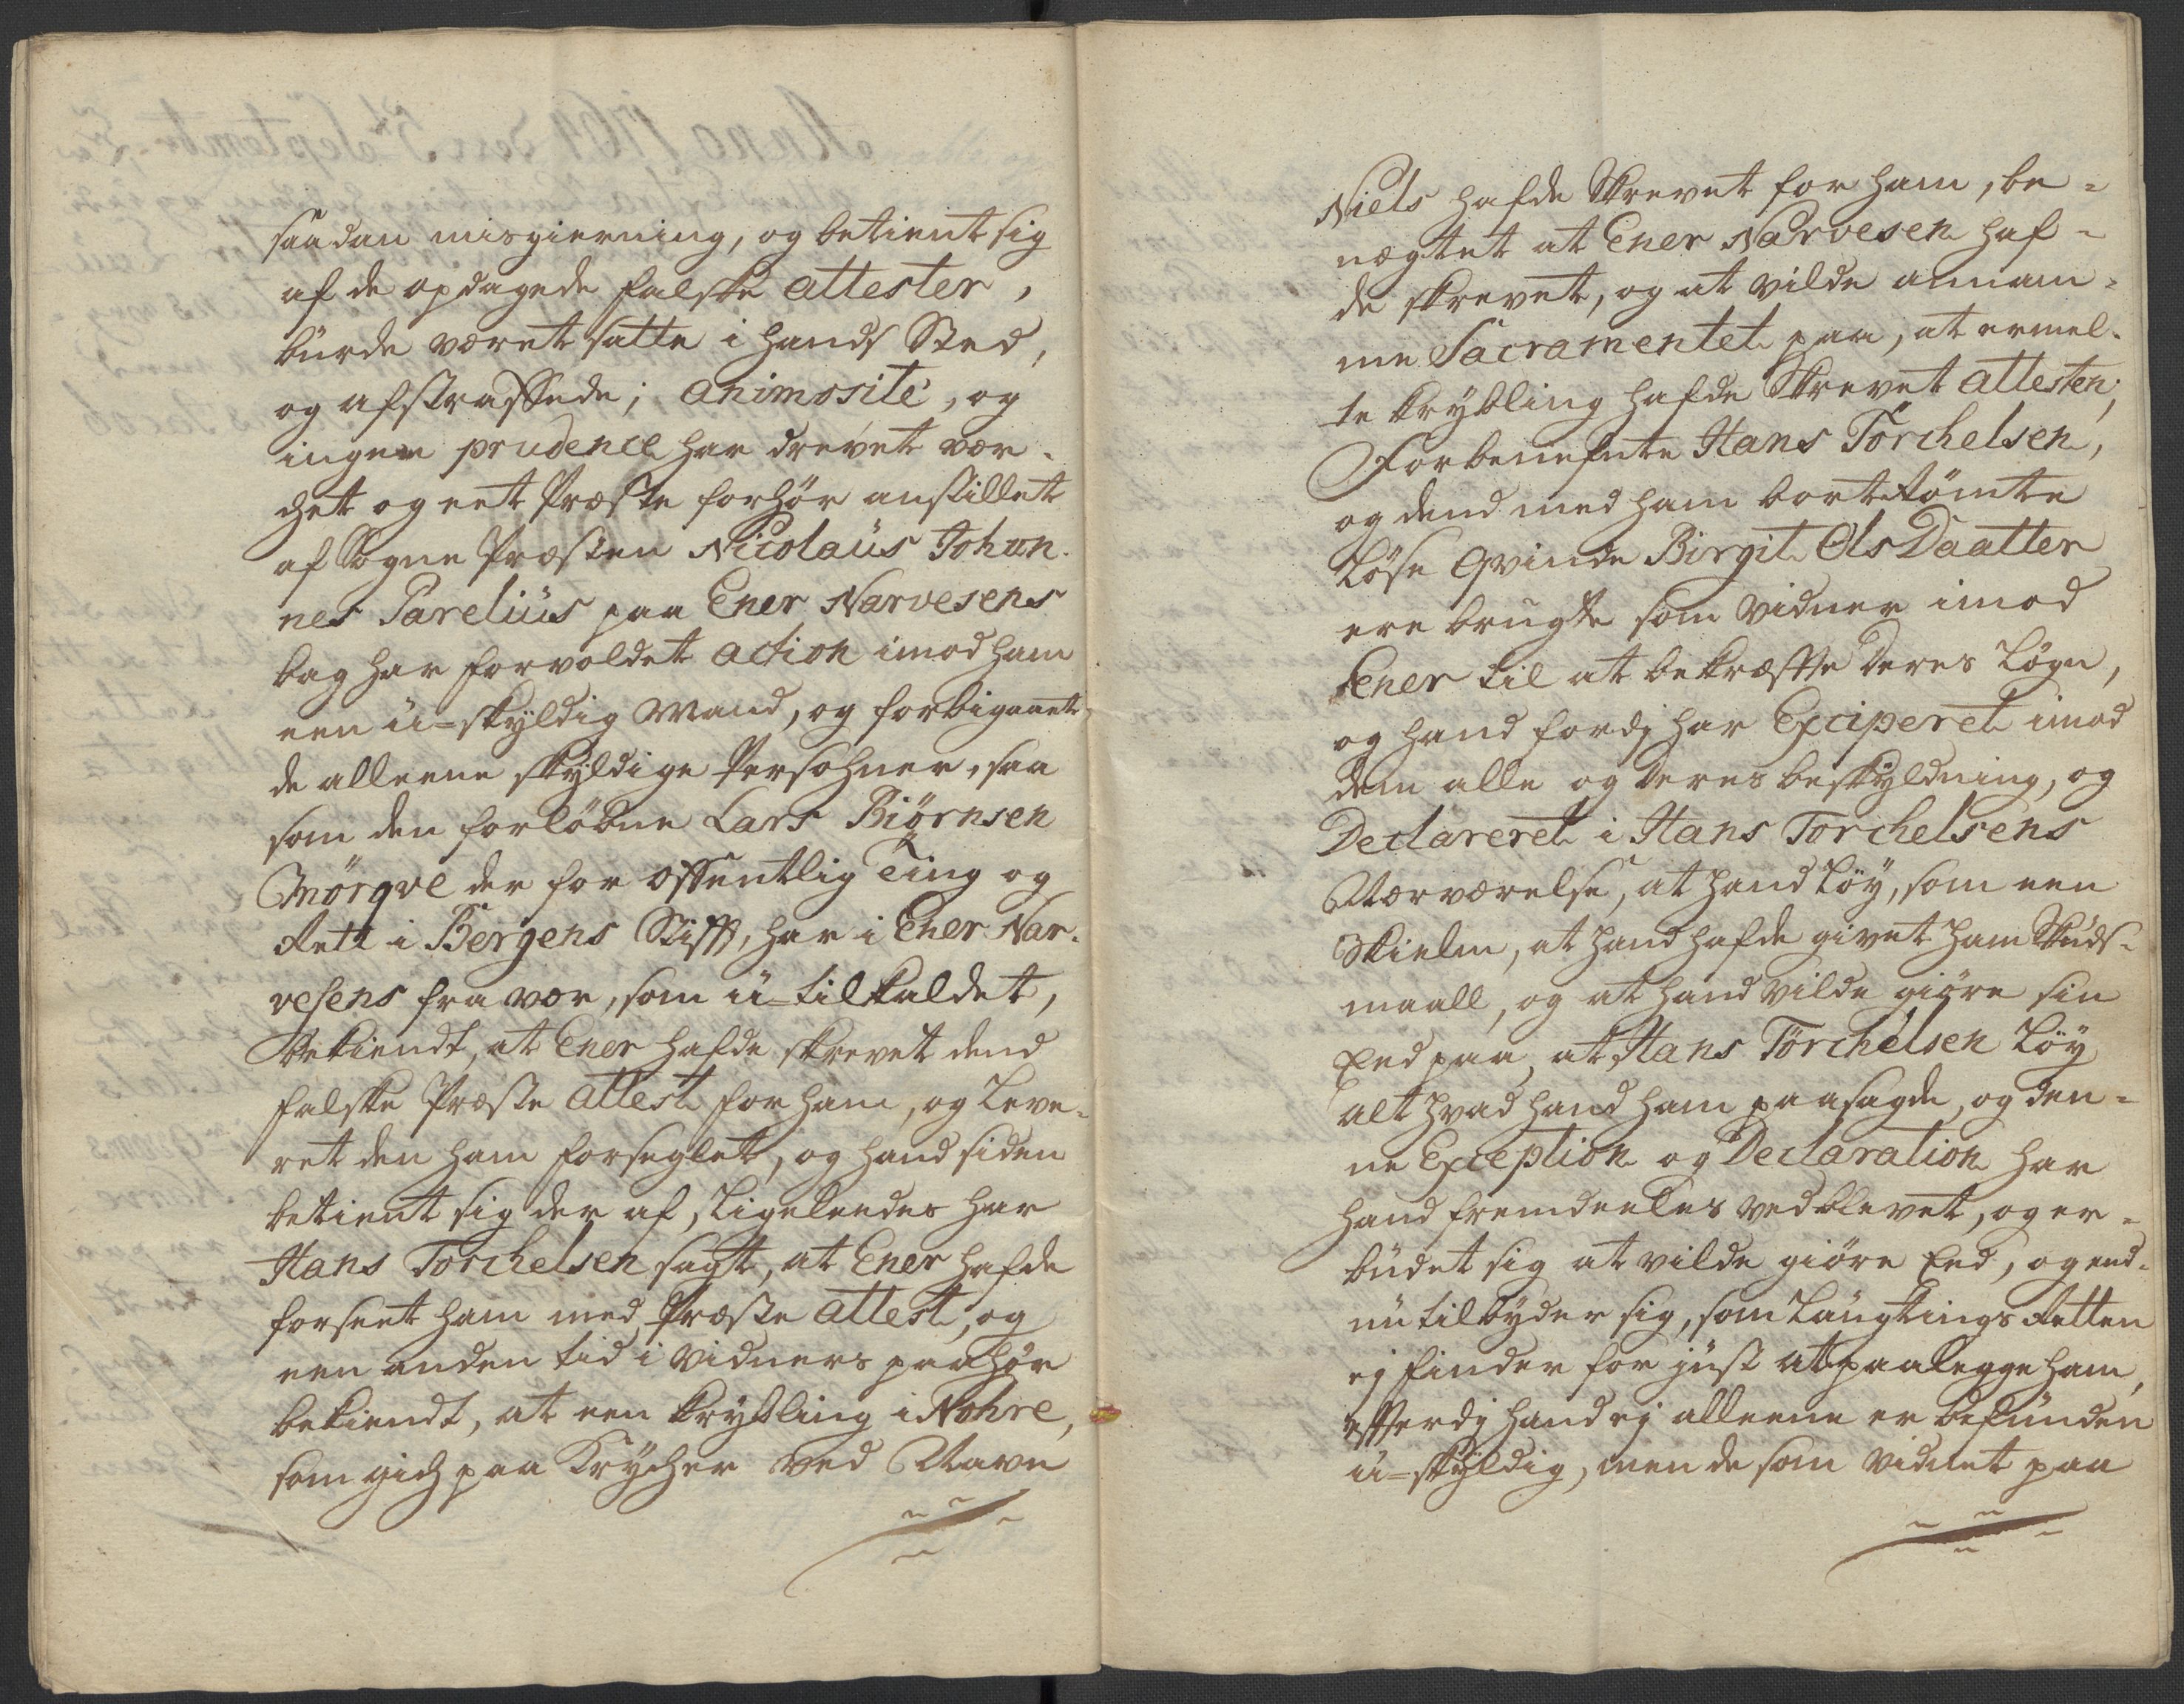 saadan misgierning, og betient sig
af de opdagede falske attester,
burde været satte i hands Sted,
og afstraffede; animosite, og
ingen prudence har drevet vær-
chet og eet Præste forhör anstillet
af Sogne Præsten Nicolaus Johan-
nes Parelius paa Ener Narvesens
bag har forvoldet action imod ham
een u=skyldig Mand, og forbigaaet
de alleene skyldige Persohner, saa
som den forlöbne Lars Biörnsen
Mörqve der for offentlig Ting og
Rett i Bergens Stift, har i Ener Nar-
vesens fra vær, som u=tilkaldet,
bekiendt, at Ener hafde skrevet dend
falske Præste attest for ham, og Leve-
ret den ham forseglet, og hand siden
betient sig der af, Ligeleedes har
Hans Torchelsen sagt, at Ener hafde
forseet ham med Præste attest, og
een anden tid i Vidners paahör
bekiendt, at een krybling i Nohre,
som gich paa Krycher ved Navn
Niels hafde Skrevet for ham, be-
nægtet at Ener Narvesen haf-
de skrevet, og at vilde annam-
me Sacramentet paa, at ermel-
te krybling hafde Skrevet attesten,
Forbenefnte Hans Törchelsen,
og dend med ham bortrömte
Löse Qvinde Birgit Ols Daatter
ere brugte som Vidner imod
Ener til at bekræfte Deres Lögn,
og hand fordj har Exciperet imod
dem alle og Deres beskyldning, og
Declareret i Hans Torchelsens
Nærværelse, at hand Löy, som een
Skielm, at hand hafde givet ham Skuds-
maall, og at hand vilde giöre sin
Eed paa, at Hans Törchelsen Löy
alt hvad hand ham paasagde, og den-
ne Exception og Declaration har
hand fremdeeles ved blevet, og er-
budet sig at vilde giöre Eed, og end-
nu tilbyder sig, som Laugtings Retten
ej finder for just at paalegge ham,
efterdj hand ej alleene er befunden
u=skyldig, men de som vidnet paa